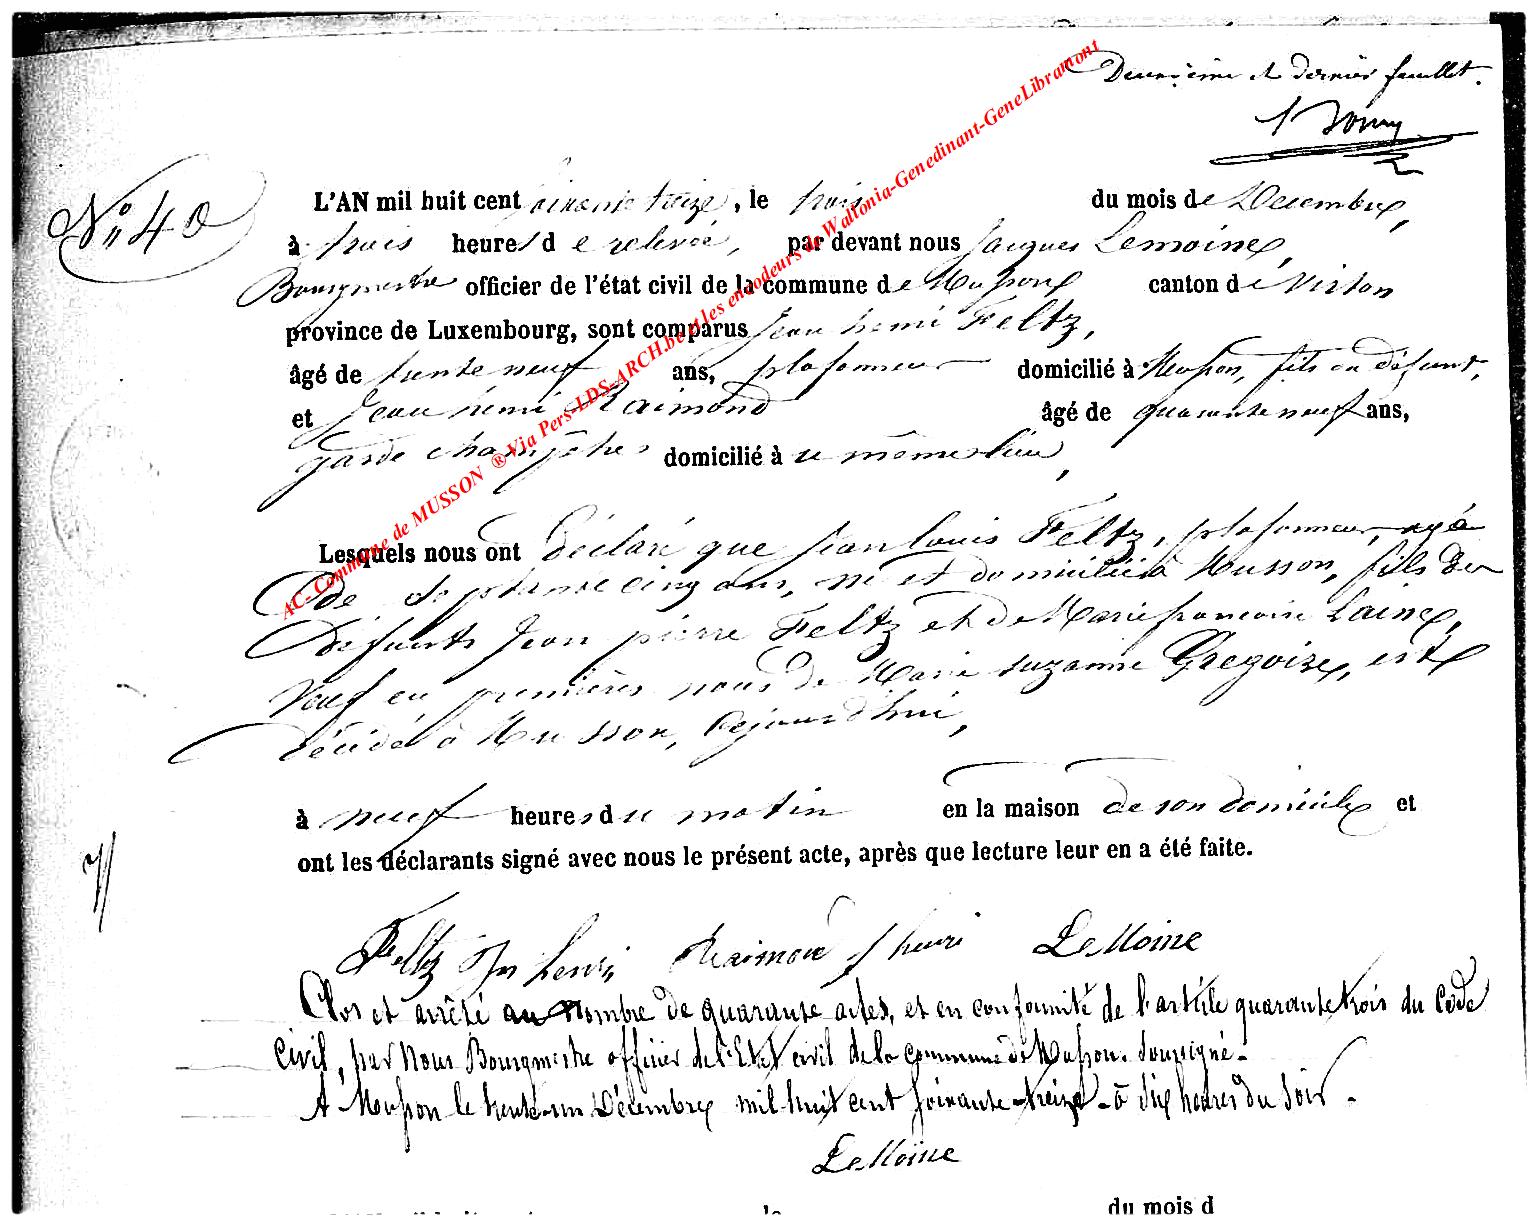 Deuxième et dernier feuillet.
N° 40
L'AN mil huit cent soixante treize, le trois du mois de Décembre,
à trois heures de relevée, par devant nous Jacques Lemoine,
Bourgmestre officier de l'état civil de la commune de Musson canton de Virton
province de Luxembourg, sont comparus Jean henri Feltz,
âgé de trente neuf ans, plafonneur domicilié à Musson, fils du défunt,
et Jean henri Raimond âgé de quarante neuf ans,
garde champêtre domicilié à ce même lieu,
Lesquels nous ont déclaré que Jean Louis Feltz, plafonneur, agé
de septante cinq ans, né et domicilié à Musson, fils des
défunts Jean pierre Feltz et de Marie françoise Laine,
Veuf en premières noces de Marie Suzanne Gregoire, est
décédé à Musson, Cejourd'hui,
à neuf heures du matin en la maison de son domicile et
ont les déclarants signé avec nous le présent acte, après que lecture leur en a été faite.
Feltz Jn henri Raimond J henri LeMoine
Clos et arrêté au nombre de quarante actes, et en conformité de l'article quarante trois du Code
Civil, par Nous Bourgmestre officier de l'Etat civil de la commune de Musson. soussigné-
A Musson le trente-un Décembre mil-huit cent soixante-treize - à Six heures du Soir -
LeMoine
le du mois d
AC- Commune de MUSSON ® Via Pers-LDS-ARCH.be et les encodeurs de Waltonia-Genedinant-GeneLibramont